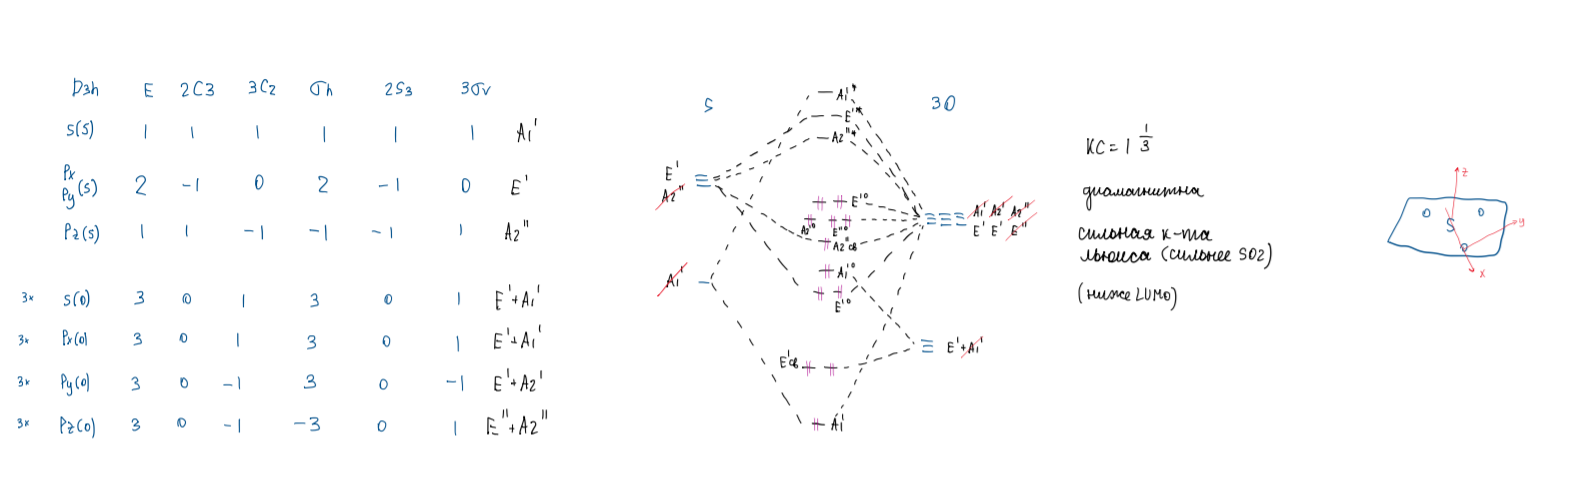 D3h E 2C3 3C2 σh 2S3 3σv
S(s) 1 1 1 1 1 1 A1'
Px
Py(s) 2 -1 0 2 -1 0 E'
Pz(s) 1 1 -1 -1 -1 1 A2"
3x S(o) 3 0 1 3 0 1 E'+A1'
3x Px(o) 3 0 1 3 0 1 E'+A1'
3x Py(o) 3 0 -1 3 0 -1 E'+A2'
3x Pz(o) 3 0 -1 -3 0 1 E"+A2"
S
3O
A1'*
E'*
A2"*
E'
A2"
E'°
A2'°
E"°
A2"св
A1' A2' A2"
E' E' E"
A1'
A1'°
E'°
E'+A1'
E'св
A1'
КС = 1 1/3
диамагнитна
сильная к-та
льюиса (сильнее SO2)
(ниже LUMO)
z
O O
S
y
O
x